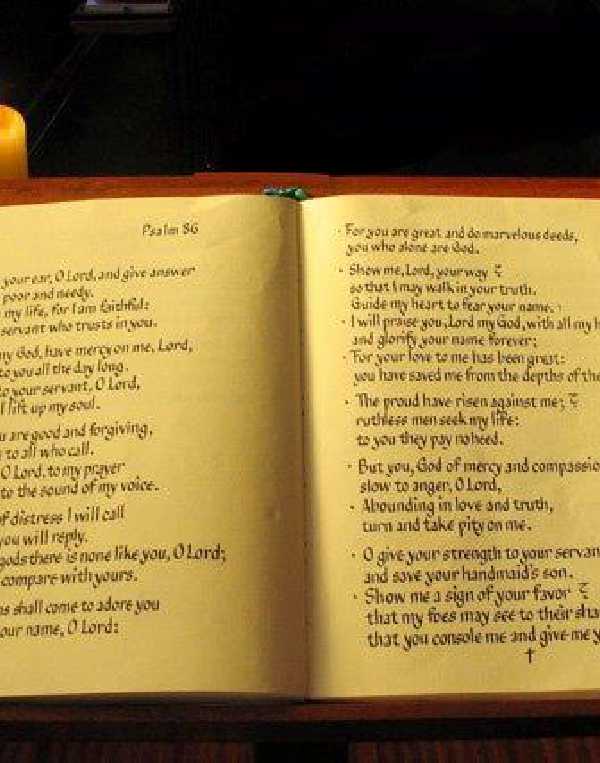 Psalm 86
your ear, O Lord, and give answer
poor and needy.
my life, for I am faithful:
servant who trusts in you.
my God, have mercy on me, Lord,
to you all the day long.
to your servant, O Lord,
I lift up my soul.
are good and forgiving,
to all who call.
O Lord, to my prayer
to the sound of my voice.
of distress I will call
you will reply.
gods there is none like you, O Lord;
compare with yours.
shall come to adore you
your name, O Lord:
For you are great and do marvelous deeds,
you who alone are God.
Show me, Lord, your way
so that I may walk in your truth.
Guide my heart to fear your name.
I will praise you, Lord my God, with all my
and glorify your name forever;
For your love to me has been great:
you have saved me from the depths of the
The proud have risen against me;
ruthless men seek my life:
to you they pay no heed.
But you, God of mercy and
slow to anger, O Lord,
Abounding in love and truth,
turn and take pity on me.
O give your strength to your
and save your handmaid's son.
Show me a sign of your favor
that my foes may see to their
that you console me and give me